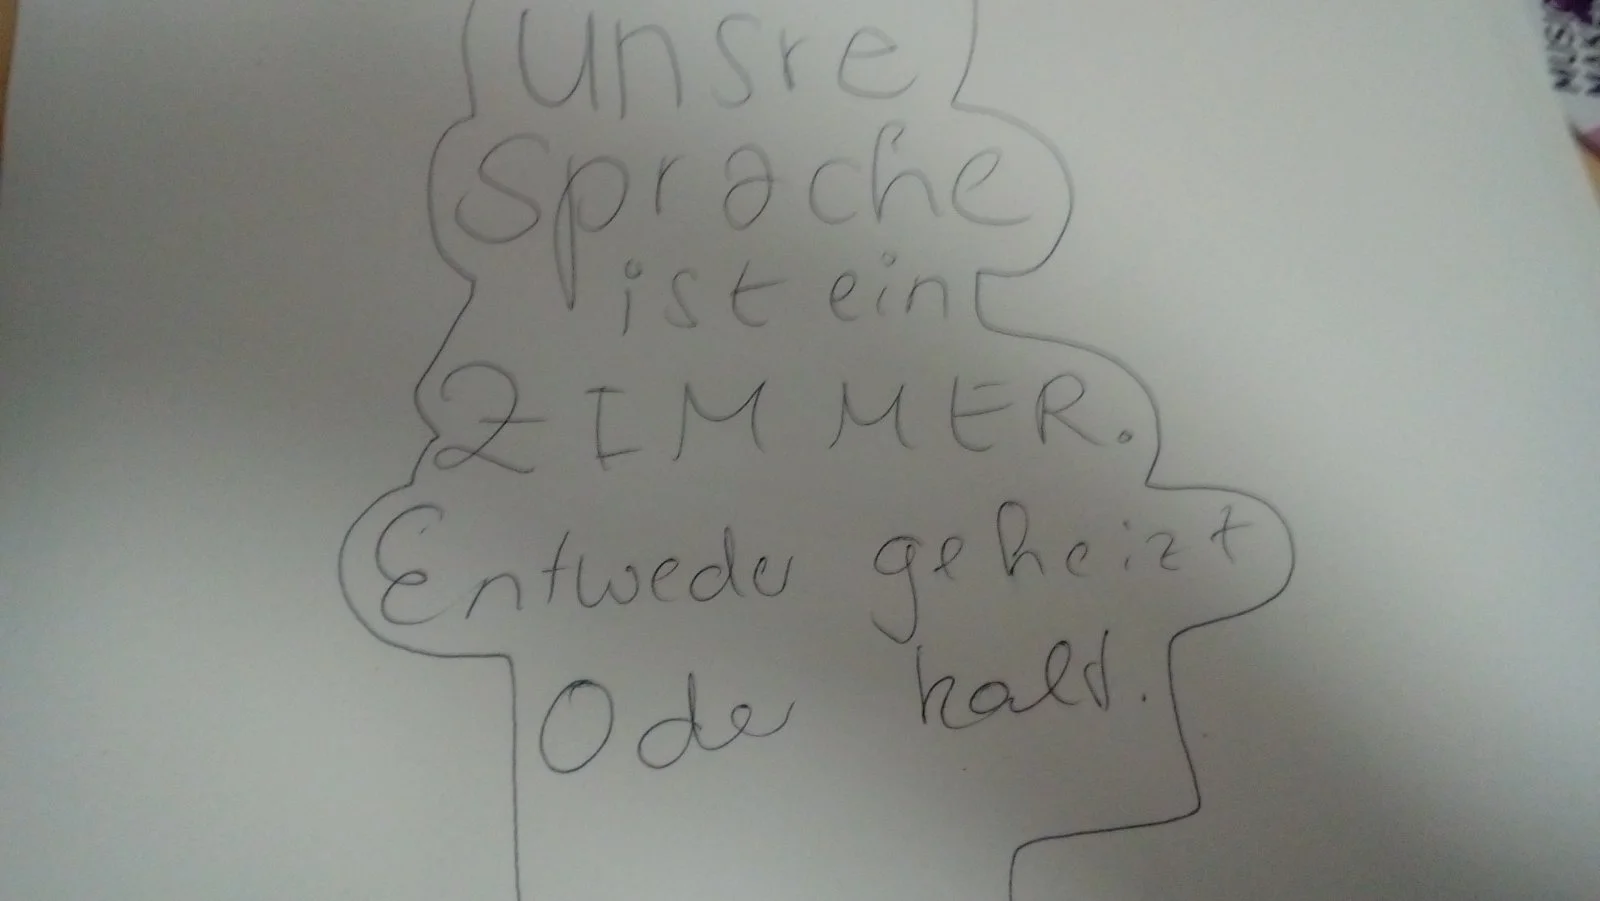 unsre
Sprache
ist ein
ZIMMER.
Entweder geheizt
Oder kalt.